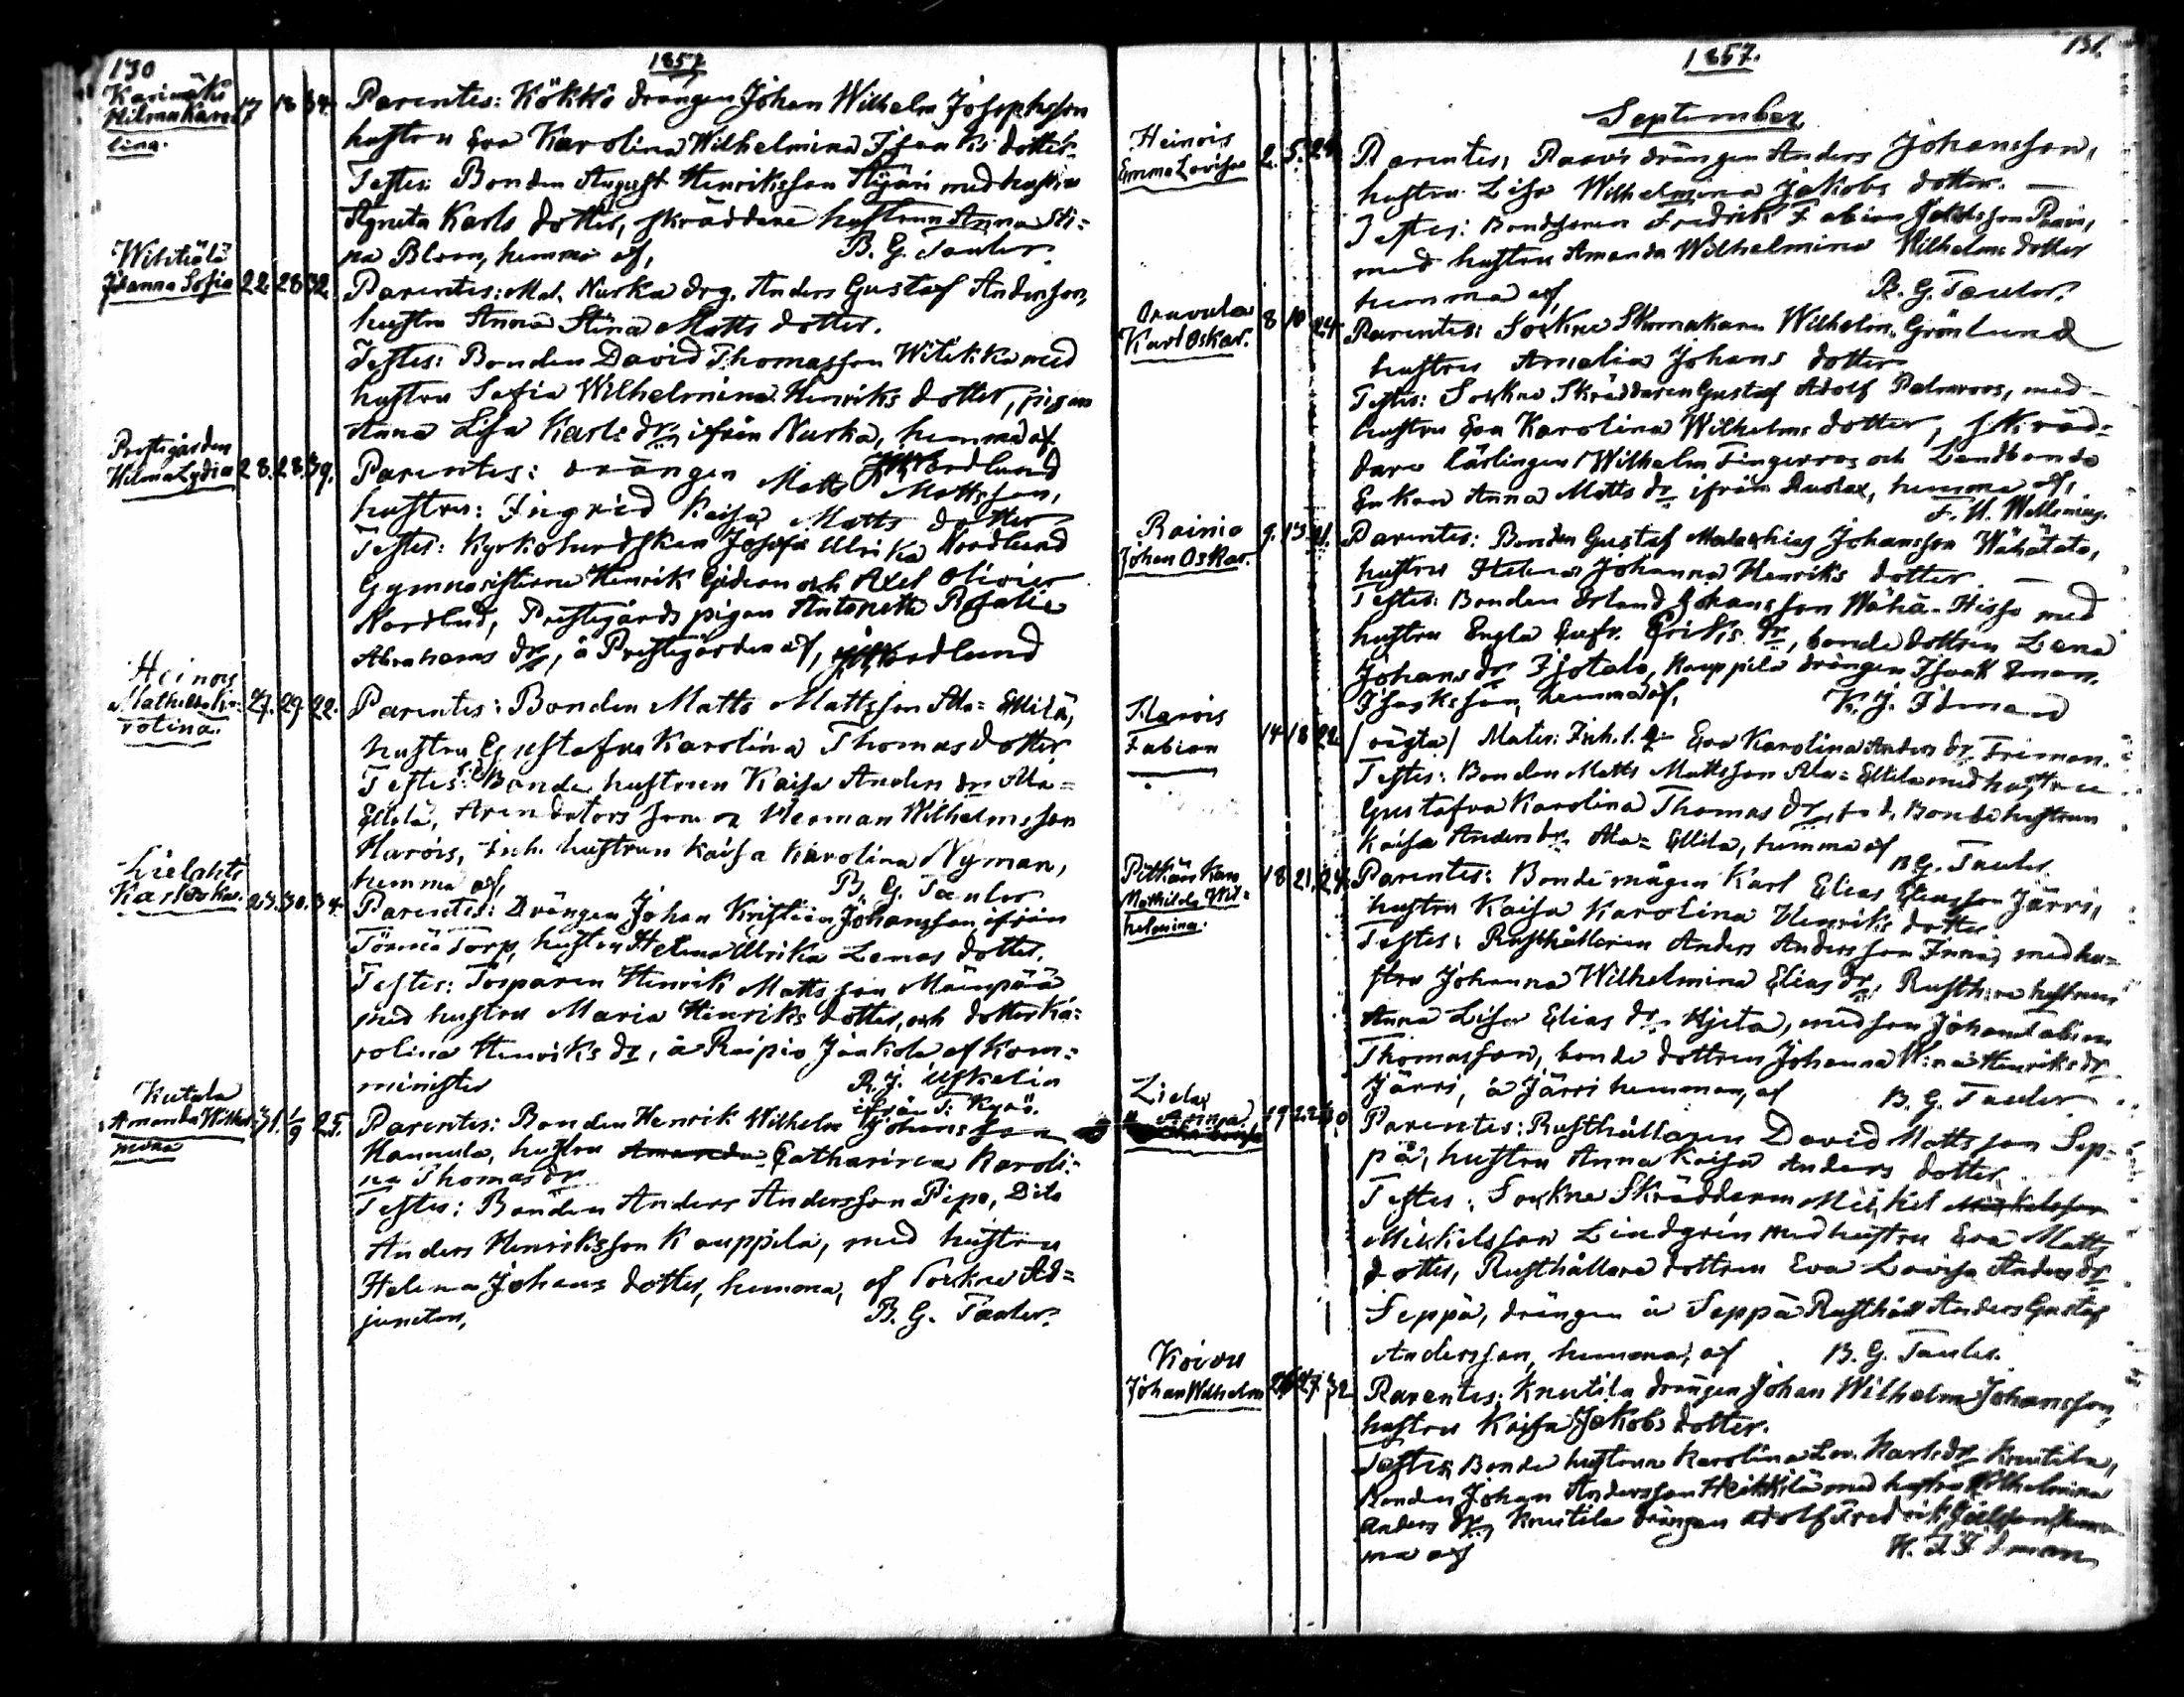 130
1857
Karimäki
Hilma Karo=
lina.
17 18 34.
Parentes: Kökkö drängen Johan Wilhelm Josephsson
hustru Eva Karolina Wilhelmina Isaaks dotter
Testes: Bonden August Henriksson Äijäri med hustru
Agneta Karls dotter, skräddare hustrun Anna Sti=
na Bloom, hemma af,
B. G. Tauler.
Johanna Sofia
22. 28 32.
Parentes: Mat. Nuska drg. Anders Gustaf Andersson,
hustru Anna Stina Matts dotter.
Testes: Bonden David Thomasson Witikka med
hustru Sofia Wilhelmina Henriks dotter, pigan
Anna Lisa Karls dr, ifrån Nuska, hemma af
Nordlund
Prestgården
Hilma Lydia
28. 28. 39.
Parentes: drängen Matts Mattsson,
hustru: Ingrid Kaisa Matts dotter
Testes: Kyrkoherdskan Josefa Ulrika Nordlund
Gymnasisterne Henrik Gideon och Axel Olivier
Nordlud, Prestegårds pigan Antonetta Rosalia
Abrahams dr, å Prestegården af, Nordlund
Heinois
Mathilda Ka=
rolina.
27. 29. 22.
Parentes: Bonden Matts Mattsson Ala=Ellilä,
hustru Gustafva Karolina Thomas dotter
Testes: f.d. Bonde hustrun Kaisa Anders dr Ala=
Ellilä, Arendators sonen Herman Wilhelmsson
Harois, Inh. hustrun Kaisa Karolina Nyman,
hemma af,
B. G. Tauler
Lielahti
Karl Oskar.
23. 30. 34.
Parentes: Drängen Johan Kristian Johansson, ifrån
Tönniä Torp, hustru Helena Ulrika Lenas dotter.
Testes: Torparen Henrik Mattsson Mäenpää
med hustru Maria Henriks dotter, och dotter Ka=
rolina Henriks dr, å Raipio Jaakola af Kom=
minister
R. J. Uskelin
ifrån T. Kyrö.
Kutala
Amanda Wilhel=
mina
31. 1/9 25.
Parentes: Bonden Henrik Wilhelm Johansson
Hannula, hustru Amanda Catharina Karoli=
na Thomas dr
Testes: Bonden Anders Andersson Pipo, Dito
Anders Henriksson Kauppila, med hustru
Helena Johans dotter, hemma, af Sockne Ad=
juncten,
B. G. Tauler.
131.
1857.
September.
Heinois
Emma Lovisa
2. 5. 24
Parentes: Paavis drängen Anders Johansson,
hustru Lisa Wilhelmina Jakobs dotter.
Testes: Bondesonen Fredrik Fabian Jakobsson Paavi,
med hustru Amanda Wilhelmina Wilhelms dotter
hemma af,
B. G. Tauler.
Karl Oskar.
8 10 24
Parentes: Sockne Skomakare Wilhelm Grönlund
hustru Amalia Johans dotter
Testes: Sockne Skräddaren Gustaf Adolf Palmroos, med
hustru Eva Karolina Wilhelms dotter, skräd=
dare lärlingen Wilhelm Fingerroos och Landbonde
Enkan Anna Matts dr ifrån, hemma af,
Rainio
Johan Oskar.
9. 13.
Parentes: Bonden Gustaf Malachias Johansson Wähätalo,
hustru Helena Johanna Henriks dotter
Testes: Bonden Erland Johansson Wähä-Hisso med
hustru Engla Eufr. Eriks dr, bonde dottren Lena
Johans dr Isotalo, Kauppila drängen Isaak Eman.
Isaksson, hemma af,
K. J. Idman
Harois
Fabian
14 18 22
(oägta) Mater: Inh. Eva Karolina Anders dr Friman.
Testes: Bonden Matts Mattsson Ala=Ellila med hustru
Gustafva Karolina Thomas dr, f.d. Bonde hustrun
Kaisa Anders dr Ala=Ellila, hemma af
B. G. Tauler
Mathilda Wil=
helmina.
18 21. 24.
Parentes: Bonde mågen Karl Elias Eliasson Järri,
hustru Kaisa Karolina Henriks dotter
Testes: Rusthållaren Anders Andersson Inna, med hu=
stru Johanna Wilhelmina Elias dr, Rusth:re hustrun
Anna Lisa Elias dr Hjeta, med son Johan Fabian
Thomasson, bonde dottren Johanna W:na Henriks dr
Järri, å Järri hemman, af
B. G. Tauler
Anna
19 22 40
Parentes: Rusthållaren David Mattsson Sep=
pä, hustru Anna Kaisa Anders dotter
Testes: Sockne Skräddaren Mickel Mickelsson
Mickelsson Lindgrén med hustru Eva Matts
dotter, Rusthållare dottren Eva Lovisa Anders dr
Seppä, drängen å Seppä Rusthåll Anders Gustaf
Andersson, hemma, af
B. G. Tauler.
Koivu
Johan Wilhelm
26 27 32
Parentes: Knutila drängen Johan Wilhelm Johansson,
hustru Kaisa Jakobs dotter.
Testes: Bonde hustrun Karolina Lov. Karls dr Knutila,
Bonden Johan Andersson Heikkilä med hustru Wilhelmina
Anders dr, Knutila drängen Adolf Fredrik
ma af
K. J. Idman